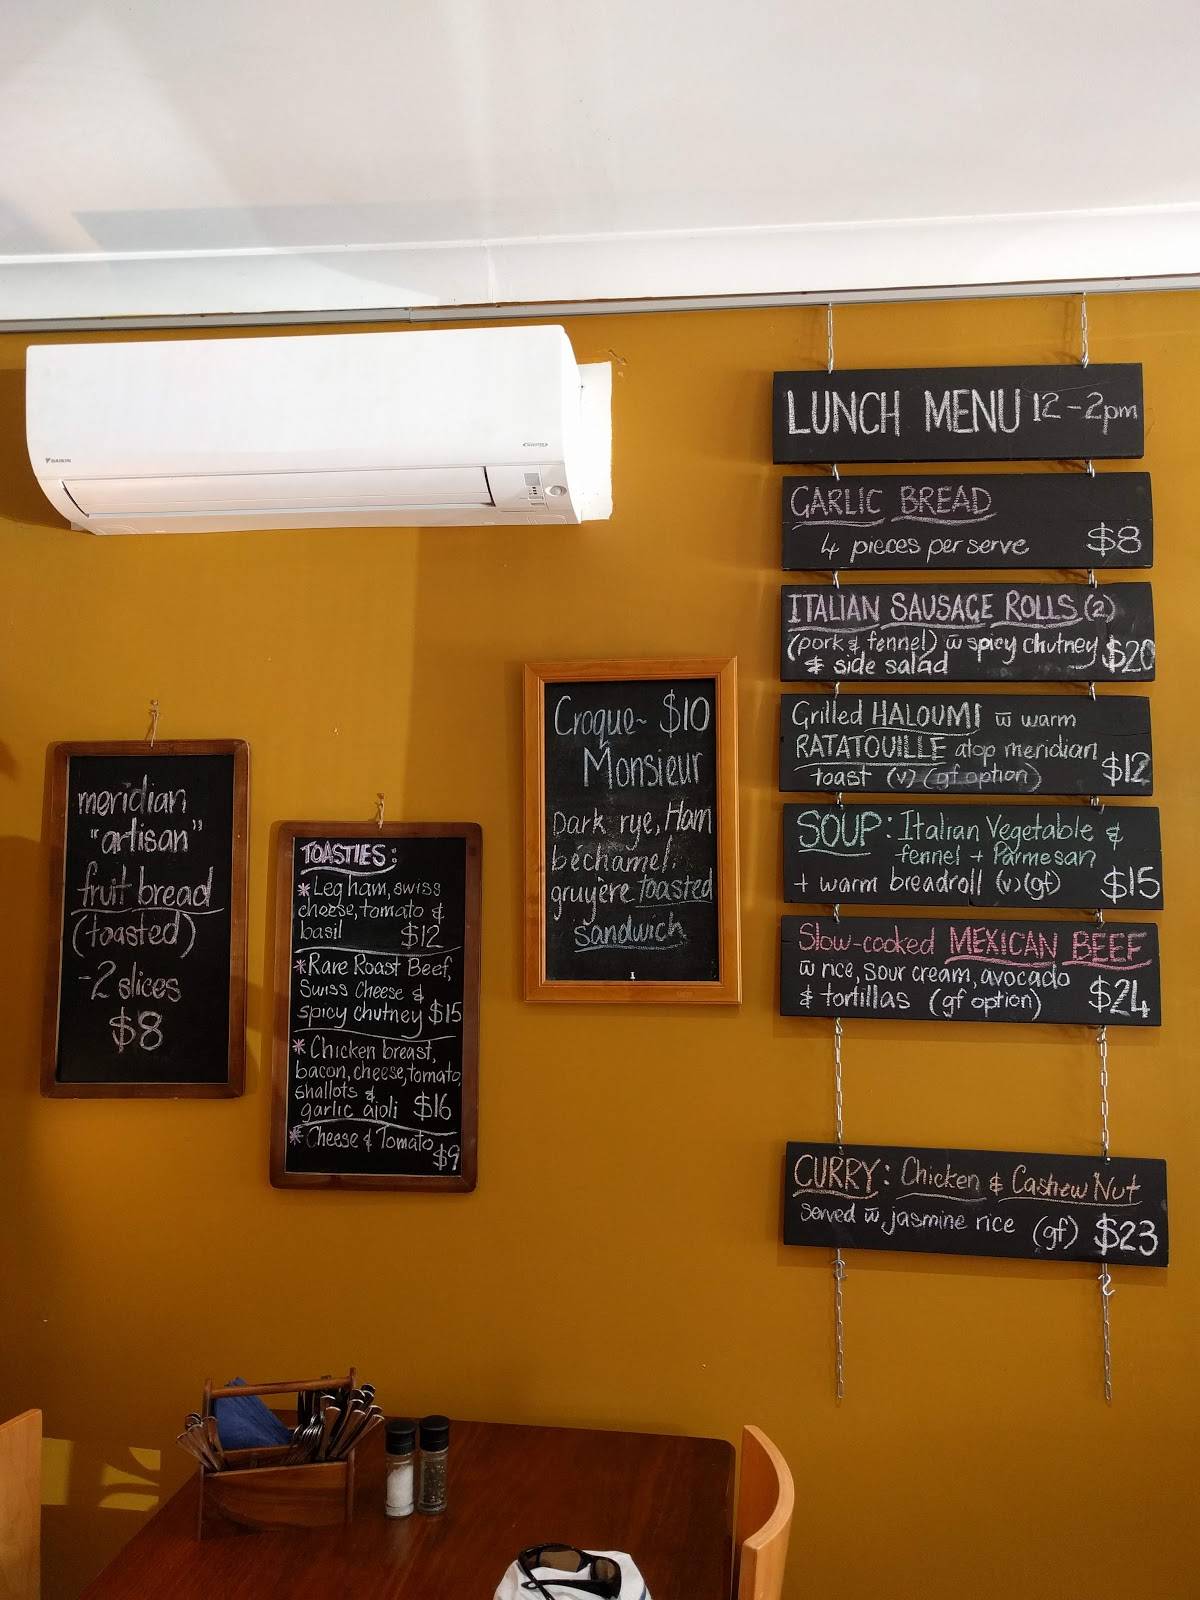 DAIKIN
meridian
"artisan"
fruit bread
(toasted)
-2 slices
$8
TOASTIES:
*Leg ham, swiss
cheese, tomato &
basil $12
*Rare Roast Beef,
Swiss Cheese &
spicy chutney $15
*Chicken breast,
bacon, cheese, tomato,
shallots &
garlic aioli $16
*Cheese & Tomato
$9
Croque~ $10
Monsieur
Dark rye, Ham
béchamel,
gruyère toasted
sandwich
LUNCH MENU 12-2pm
GARLIC BREAD
4 pieces per serve $8
ITALIAN SAUSAGE ROLLS (2)
(pork & fennel) w̅ spicy chutney
& side salad $20
Grilled HALOUMI w̅ warm
RATATOUILLE atop meridian
toast (v) (gf option) $12
SOUP: Italian Vegetable &
fennel + Parmesan
+ warm breadroll (v)(gf) $15
Slow-cooked MEXICAN BEEF
w̅ rice, sour cream, avocado
& tortillas (gf option) $24
CURRY: Chicken & Cashew Nut
served w̅ jasmine rice (gf) $23